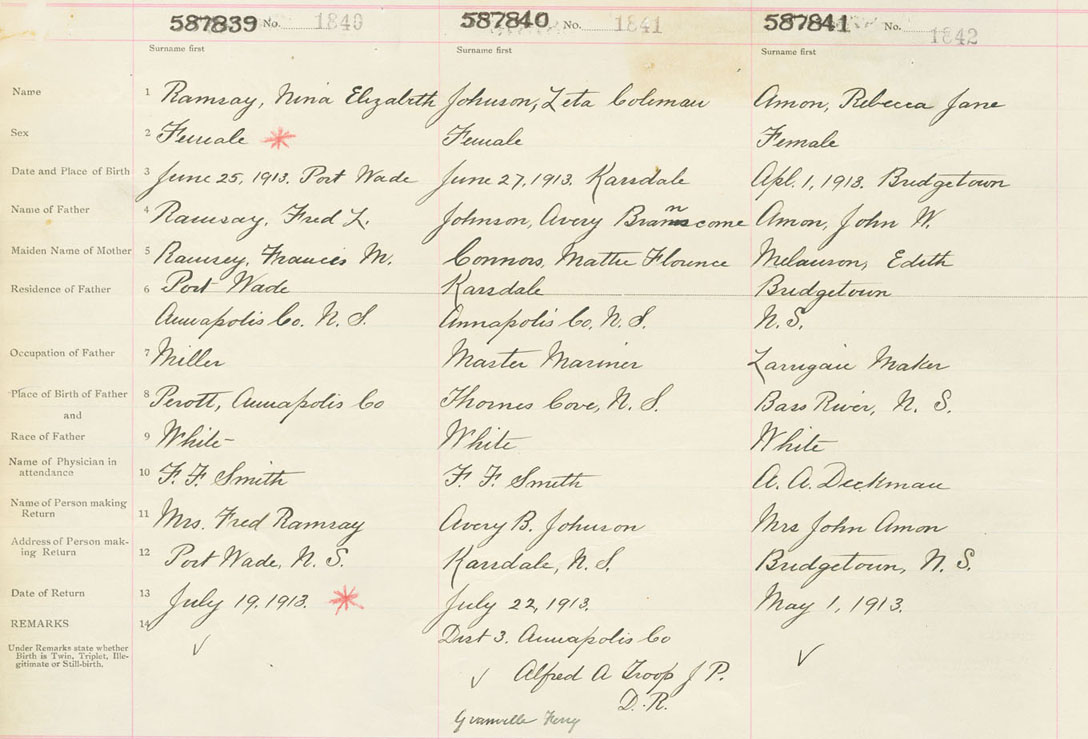 587839 No. 1840 587840 No. 1841 587841 No. 1842
Surname first Surname first Surname first
Name 1 Ramsay, Nina Elizabeth Johnson, Zeta Coleman Amon, Rebecca Jane
Sex 2 Female Female Female
Date and Place of Birth 3 June 25, 1913. Port Wade June 27, 1913. Karsdale Apl. 1, 1913. Bridgetown
Name of Father 4 Ramsay, Fred L. Johnson, Avery Branscome Amon, John W.
Maiden Name of Mother 5 Ramsey, Francis M. Connors, Mattie Florence Melanson, Edith
Residence of Father 6 Port Wade Karsdale Bridgetown
Annapolis Co. N. S. Annapolis Co, N. S. N. S.
Occupation of Father 7 Miller Master Mariner Larrigan Maker
Place of Birth of Father 8 Perott, Annapolis Co Thornes Cove, N. S. Bass River, N. S.
and
Race of Father 9 White White White
Name of Physician in
attendance 10 F. F. Smith F. F. Smith A. A. Deckman
Name of Person making
Return 11 Mrs. Fred Ramsay Avery B. Johnson Mrs John Amon
Address of Person mak-
ing Return 12 Port Wade, N. S. Karsdale, N. S. Bridgetown, N. S.
Date of Return 13 July 19, 1913. July 22, 1913. May 1, 1913.
REMARKS 14 Dist 3. Annapolis Co
Under Remarks state whether
Birth is Twin, Triplet, Ille-
gitimate or Still-birth.
Alfred A Troop J P.
D. R.
Granville Ferry